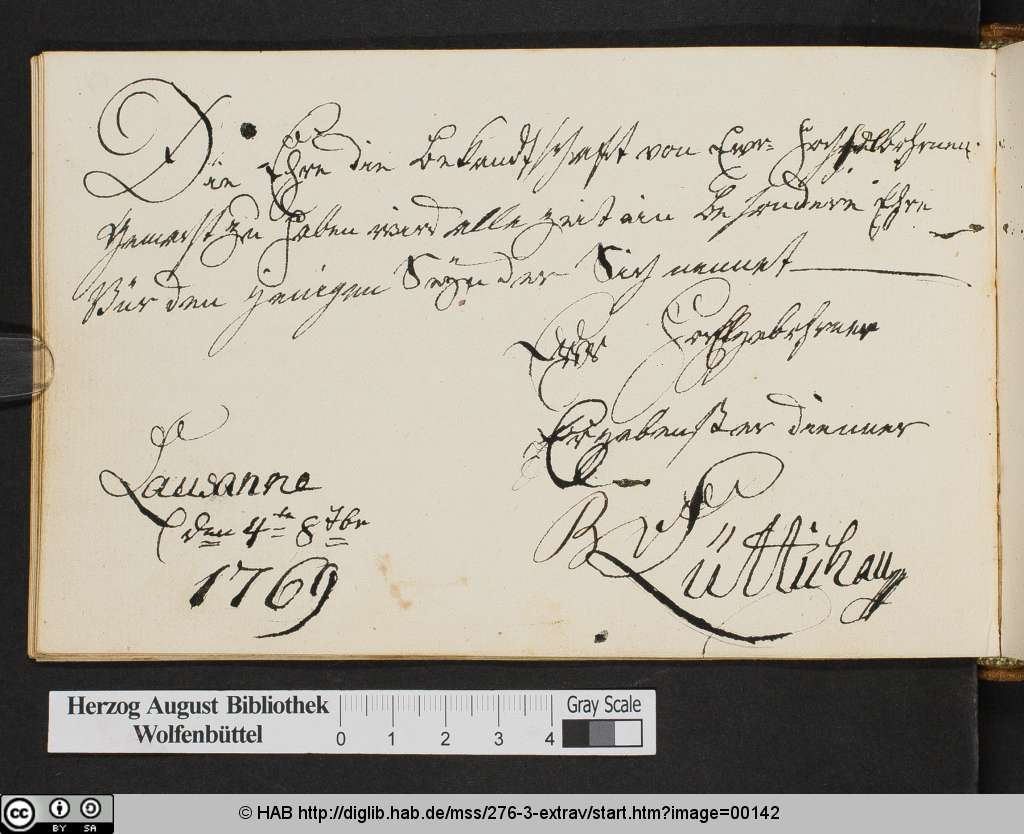 Die Ehre die Bekandtschafft von Ewr: Hochgebohrnen
gemacht zu haben wird alle zeit ein besondere Ehre
Vür den jenigen Seyn der Sich nennet
Ewr Hochgebohrner
Ergebenster dienner
Lausanne
den 4tn 8tbr
1769
B V Lüttichau
Herzog August Bibliothek
Wolfenbüttel
0 1 2 3 4
Gray Scale
cc BY SA
© HAB http://diglib.hab.de/mss/276-3-extrav/start.htm?image=00142